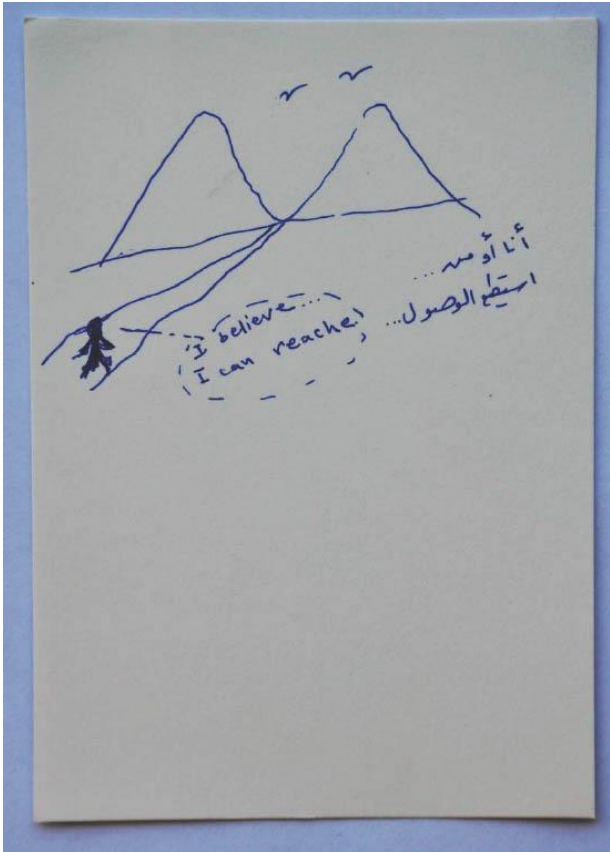 I believe...
I can reache
أنا أو من...
استطيع الوصول...